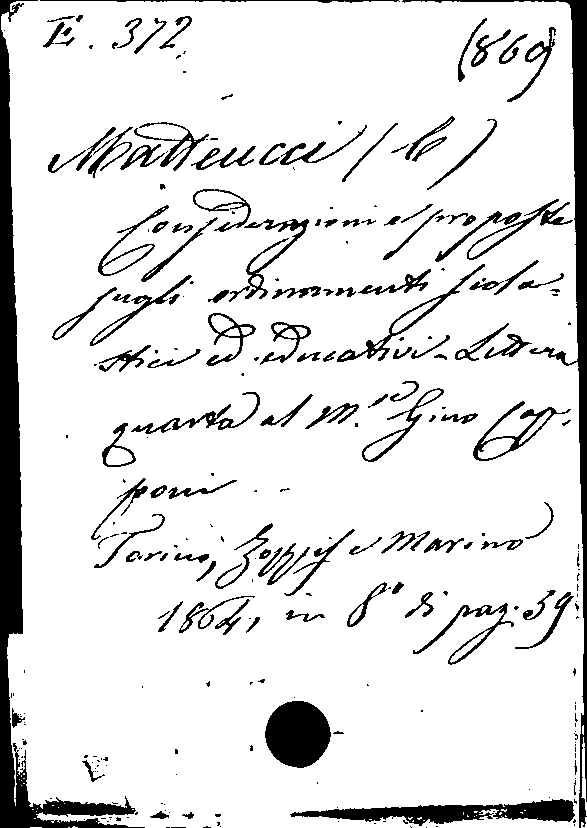 E. 372
(869)
Matteucci (C)
Considerazioni e proposte
sugli ordinamenti scola-
stici ed educativi - Lettera
quarta al M.se Gino Cap-
poni
Torino, e Marino
1864, in 8° di pag. 39